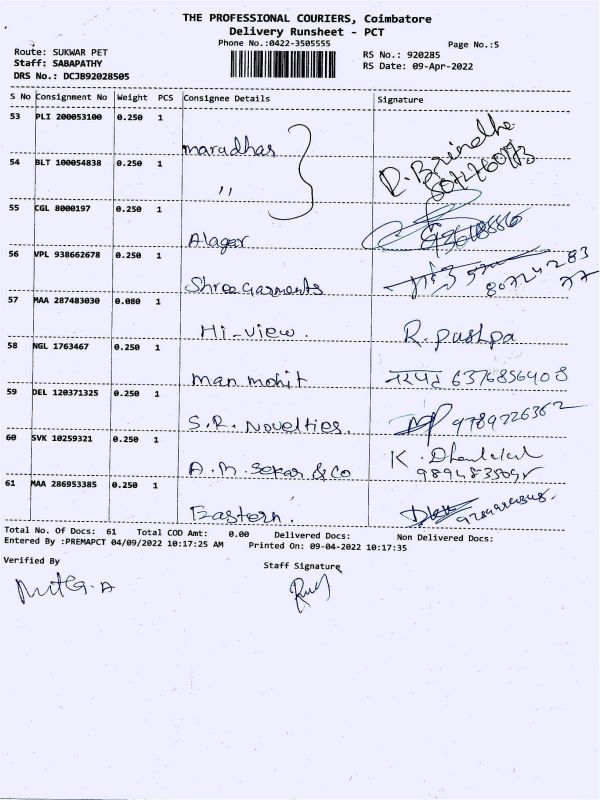 THE PROFESSIONAL COURIERS, Coimbatore
Delivery Runsheet - PCT
Phone No.:0422-3505555
Page No.:5
Route: SUKWAR PET
RS No.: 920285
Staff: SABAPATHY
RS Date: 09-Apr-2022
DRS No.: DCJB92028505
S No Consignment No Weight PCS Consignee Details Signature
53 PLI 200053100 0.250 1
marudhar R. Brindha
54 BLT 100054838 0.250 1
,,
55 CGL 8000197 0.250 1
Alagar
56 VPL 938662678 0.250 1
Shree Garments 80724283
77
57 MAA 287483030 0.080 1
Hi-view. R. pushpa
58 NGL 1763467 0.250 1
man mohit 6376856408
59 DEL 120371325 0.250 1
S.R. Novelties. 9789726362
60 SVK 10259321 0.250 1
A.M. Sekar & Co K.
61 MAA 286953385 0.250 1
Eastern.
Total No. Of Docs: 61 Total COD Amt: 0.00 Delivered Docs: Non Delivered Docs:
Entered By :PREMAPCT 04/09/2022 10:17:25 AM Printed On: 09-04-2022 10:17:35
Verified By Staff Signature